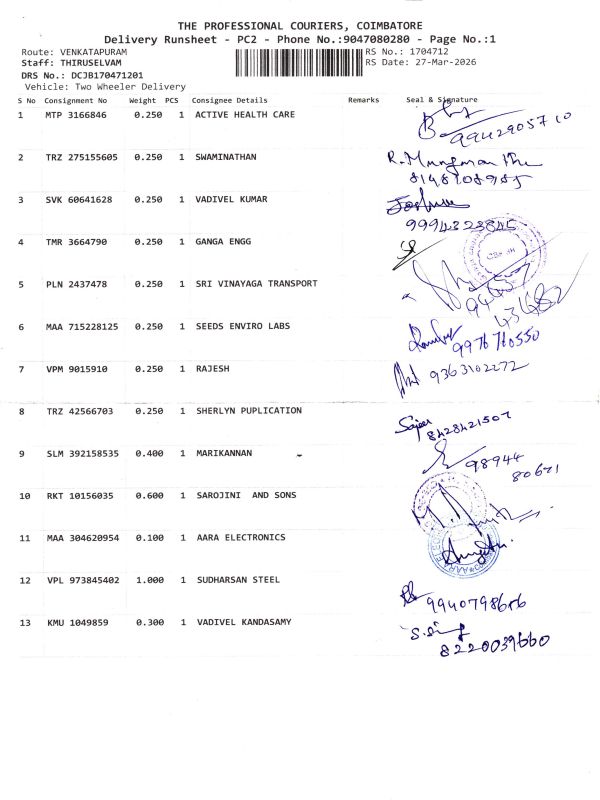 THE PROFESSIONAL COURIERS, COIMBATORE
Delivery Runsheet - PC2 - Phone No.:9047080280 - Page No.:1
Route: VENKATAPURAM RS No.: 1704712
Staff: THIRUSELVAM RS Date: 27-Mar-2026
DRS No.: DCJB170471201
Vehicle: Two Wheeler Delivery
S No Consignment No Weight PCS Consignee Details Remarks Seal & Signature
1 MTP 3166846 0.250 1 ACTIVE HEALTH CARE
9942905710
2 TRZ 275155605 0.250 1 SWAMINATHAN
3 SVK 60641628 0.250 1 VADIVEL KUMAR
9994323845
4 TMR 3664790 0.250 1 GANGA ENGG
5 PLN 2437478 0.250 1 SRI VINAYAGA TRANSPORT
6 MAA 715228125 0.250 1 SEEDS ENVIRO LABS
9976760550
7 VPM 9015910 0.250 1 RAJESH
9363102272
8 TRZ 42566703 0.250 1 SHERLYN PUPLICATION
8428421507
9 SLM 392158535 0.400 1 MARIKANNAN
98944
80671
10 RKT 10156035 0.600 1 SAROJINI AND SONS
11 MAA 304620954 0.100 1 AARA ELECTRONICS
12 VPL 973845402 1.000 1 SUDHARSAN STEEL
9940798686
13 KMU 1049859 0.300 1 VADIVEL KANDASAMY
8220039660